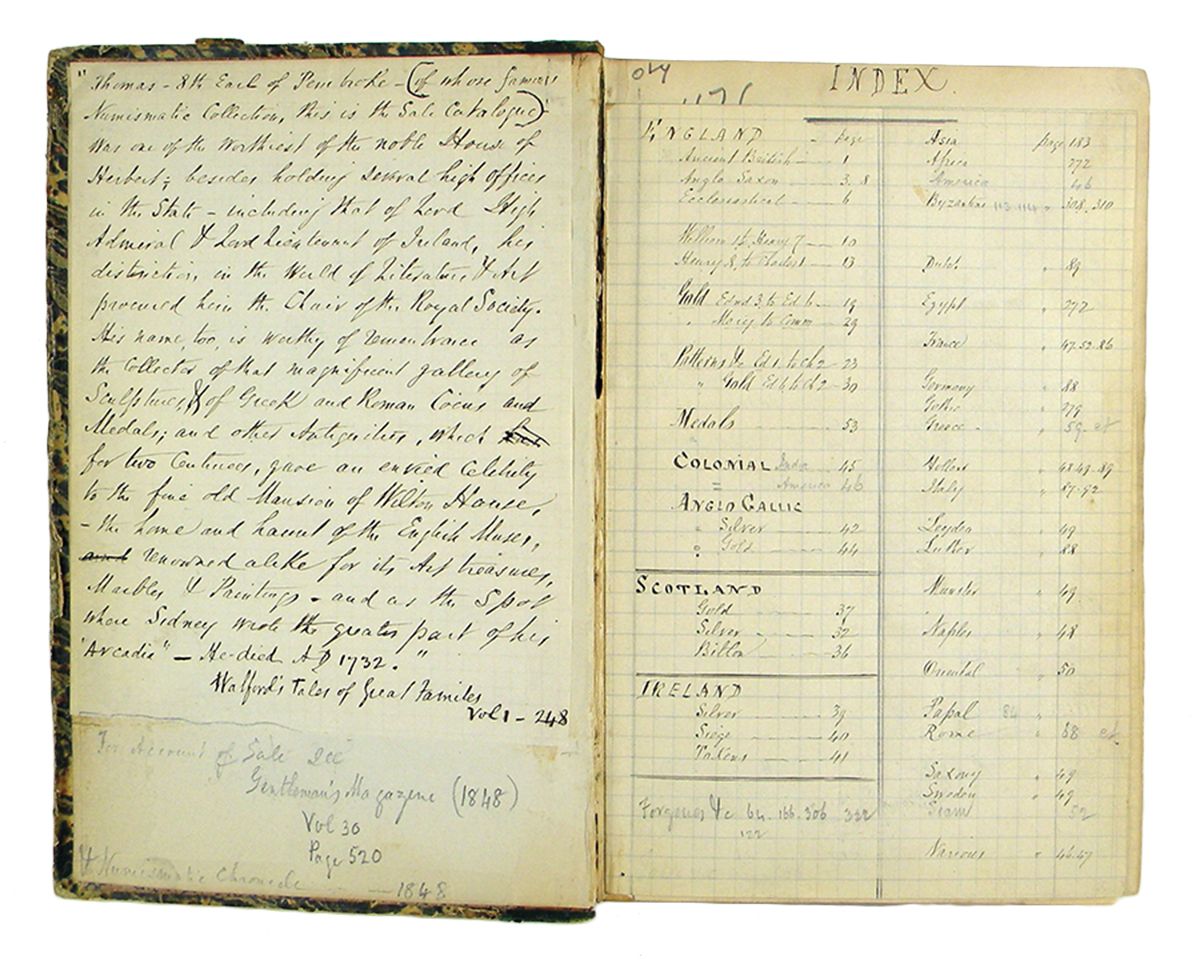 "Thomas - 8th Earl of Pembroke - (of whose famous
Numismatic Collection, this is the Sale Catalogue)
was one of the worthiest of the noble House of
Herbert; besides holding several high offices
in the State - including that of Lord High
Admiral & Lord Lieutenant of Ireland, his
distinction, in the World of Literature & Art
procured him the Chair of the Royal Society.
His name too, is worthy of remembrance as
the Collector of that magnificent gallery of
Sculptures, & of Greek and Roman Coins and
Medals; and other Antiquities, which
for two Centuries, gave an envied celebrity
to the fine old Mansion of Wilton House,
- the home and haunt of the English Muses,
and renowned alike for its Art treasures,
Marbles & Paintings - and as the Spot
where Sidney wrote the greater part of his
"Arcadia" - He died AD 1732."
Walford's Tales of Great Families
Vol 1 - 248
For Account of Sale See
Gentleman's Magazine (1848)
Vol 30
Page 520
& Numismatic Chronicle - 1848
INDEX.
ENGLAND - page
Ancient British - 1
Anglo Saxon - 3, 8
Ecclesiastical - 6
William 1 to Henry 7 - 10
Henry 8, to Charles 1 - 13
Gold Edwd 3, to Ed 6 - 19
" Mary to Comm - 29
Patterns &c Ed 1 to Ch 2 - 23
" Gold Ed 6 to Ch 2 - 30
Medals - 53
COLONIAL India - 45
= America 46
ANGLO GALLIC
" Silver - 42
" Gold - 44
SCOTLAND
Gold - 37
Silver - 32
Billon - 36
IRELAND
Silver - 39
Siege - 40
Tokens - 41
Forgeries &c 64. 166. 306 332
122
Asia page 183
Africa 272
America 46
Byzantine 113.114 " 308.310
Dutch " 89
Egypt " 272
France " 47.52.86
Germany " 88
Gothic " 279
Greece - " 59 et
" 48.49.89
Italy " 87-92
Leyden " 49
Luther " 88
Munster " 49
Naples " 48
Oriental " 50
Papal 84 "
Rome " 68 et
Saxony " 49
Sweden " 49
Siam 52
Various " 46.47